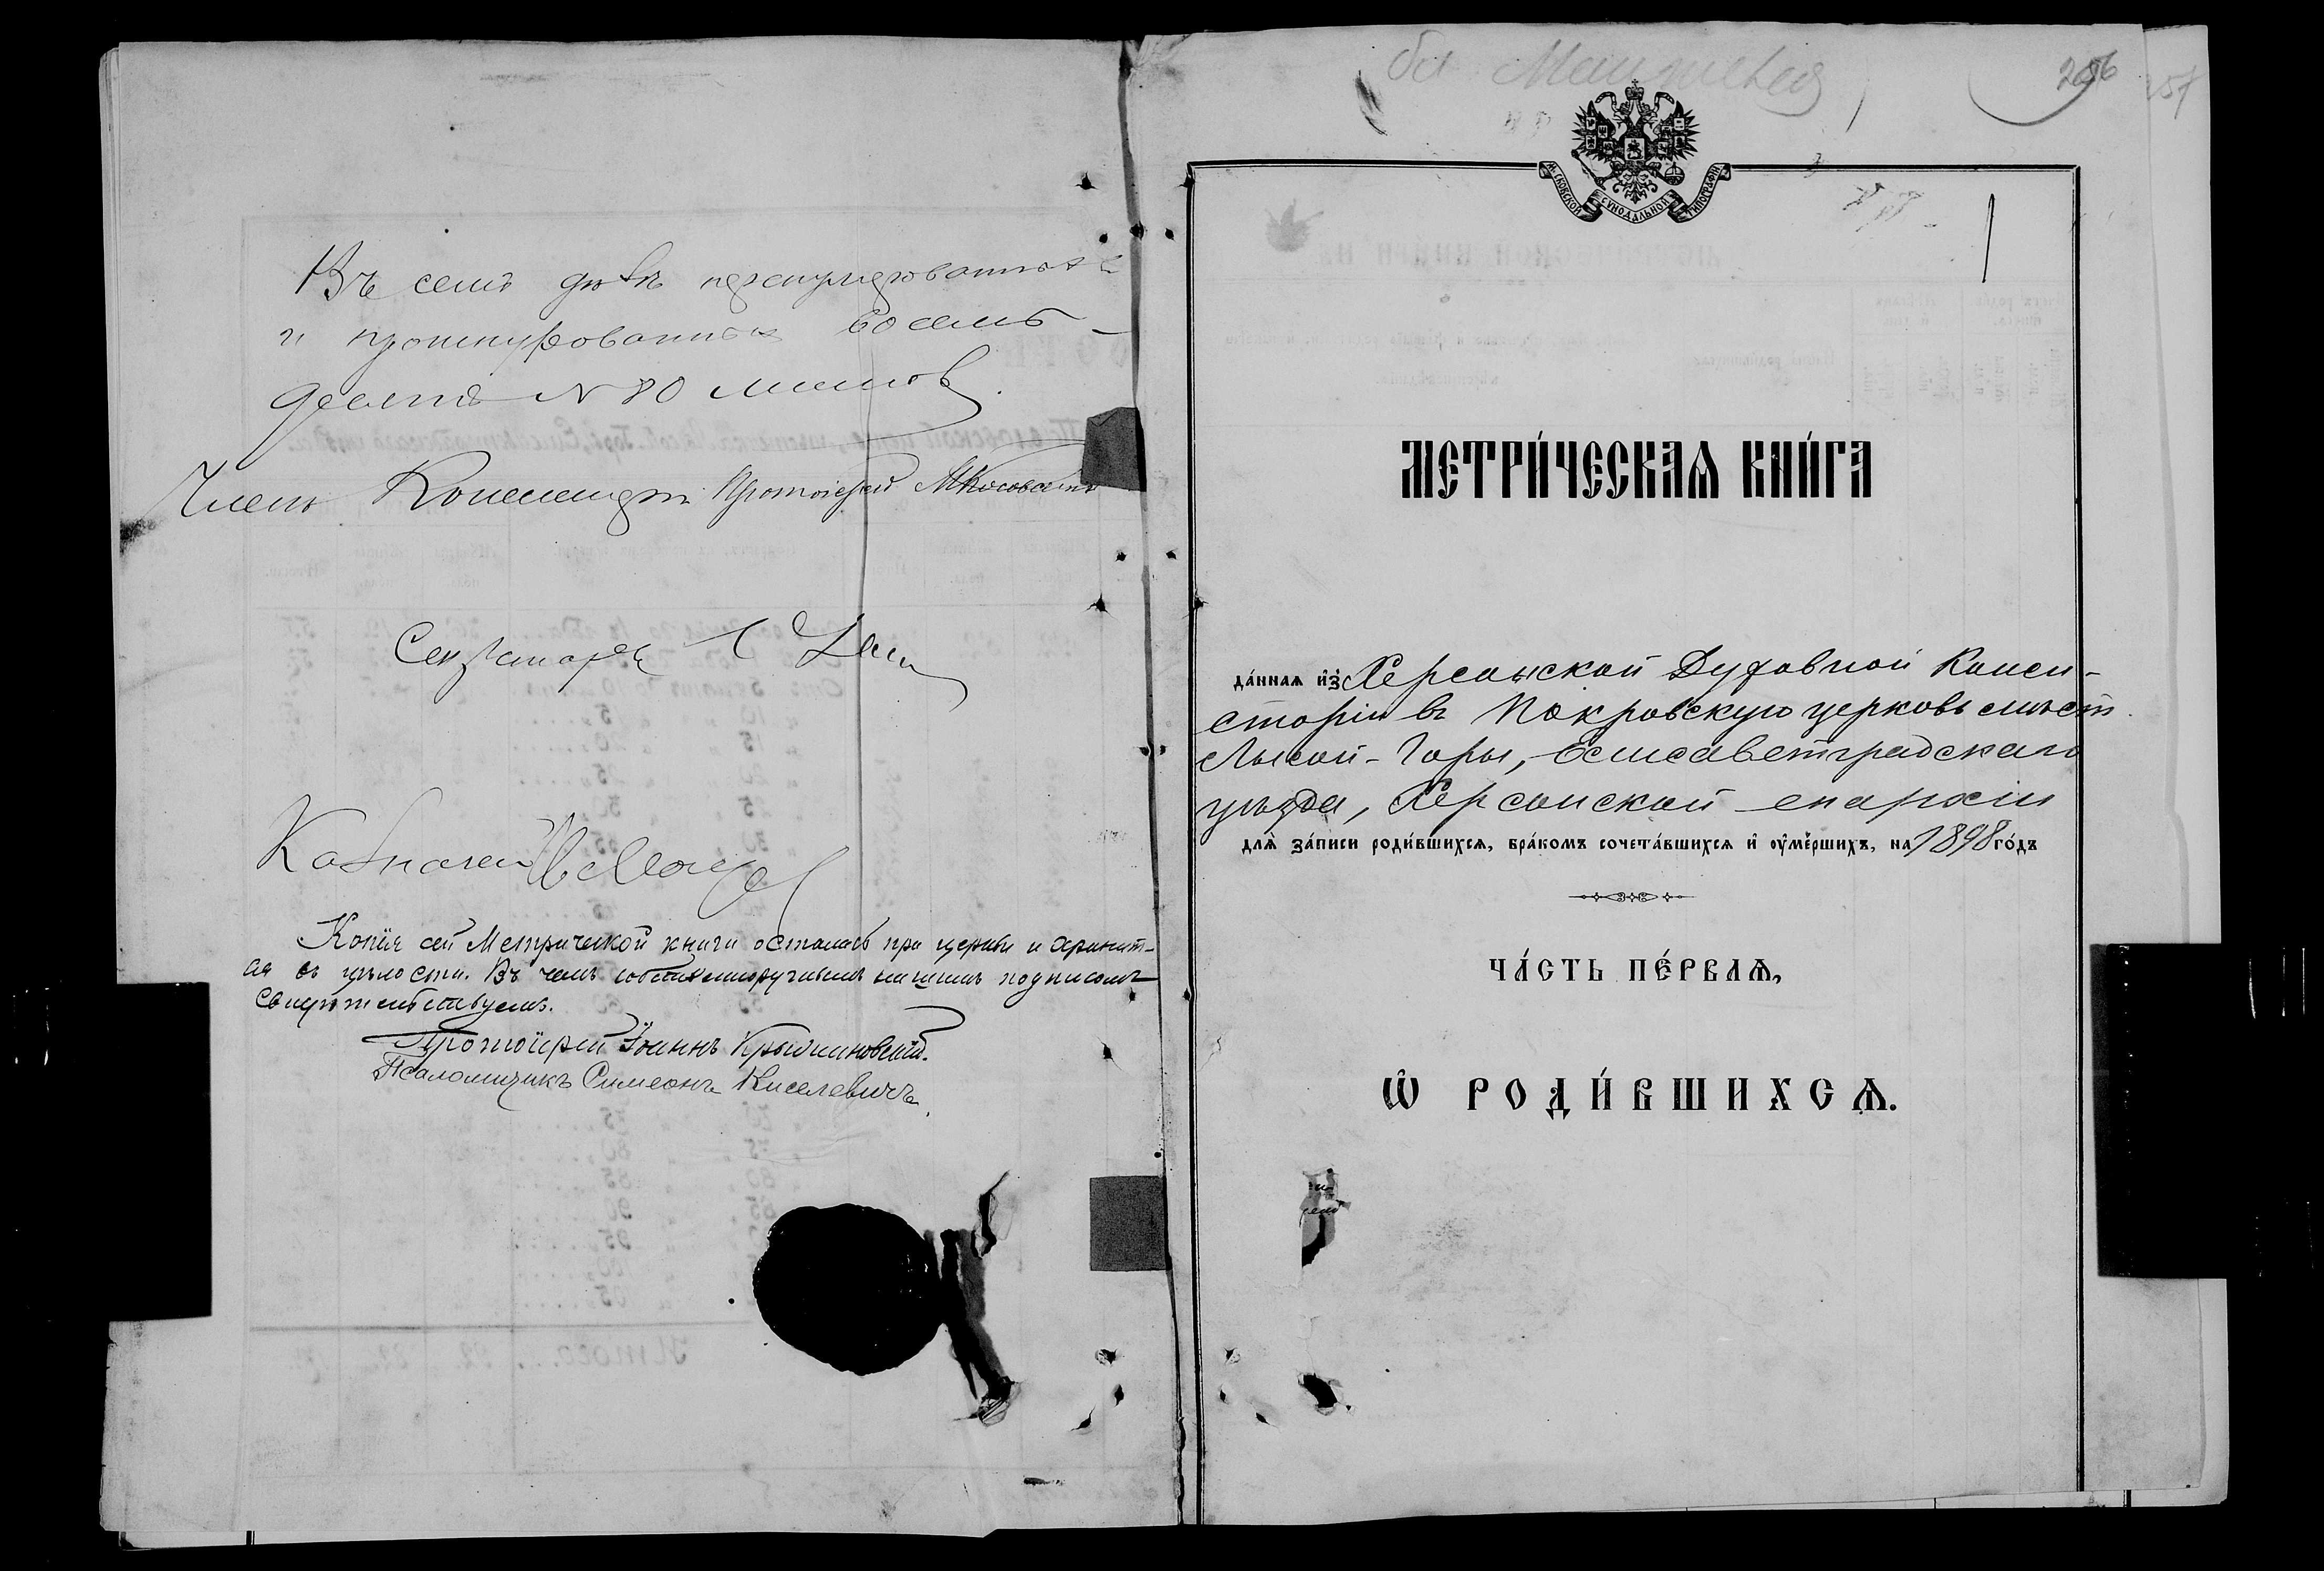 Въ семъ дѣлѣ пронумерованныхъ
и прошнурованныхъ восемь-
десятъ N 80 листовъ.
Членъ Консисторіи Протоіерей
Секретарь
Казначей
Копія сей Метрической книги осталась при церкви и хранит-
ся въ цѣлости. Въ чемъ собственноручнымъ нашимъ подписомъ
свидѣтельствуемъ.
Протоіерей Іоаннъ Крыжановскій.
Псаломщикъ Симеонъ Киселевичъ.
256
257
МОСКОВСКОЙ СѴНОДАЛЬНОЙ ТИПОГРАФІИ
1
МЕТРИ́ЧЕСКАѦ КНИ́ГА
да́ннаѧ и҆з̾ Херсонской Духовной Конси-
сторіи въ Покровскую церковь мѣст.
Лысой-Горы, Елисаветградскаго
уѣзда, Херсонской епархіи
длѧ̀ за́писи роди́вшихсѧ, бра́комъ сочета́вшихсѧ и҆ ᲂу҆ме́ршихъ, на 1898 го́дъ
ЧА́СТЬ ПЕ́РВАѦ,
Ѽ РОДИ́ВШИХСѦ.